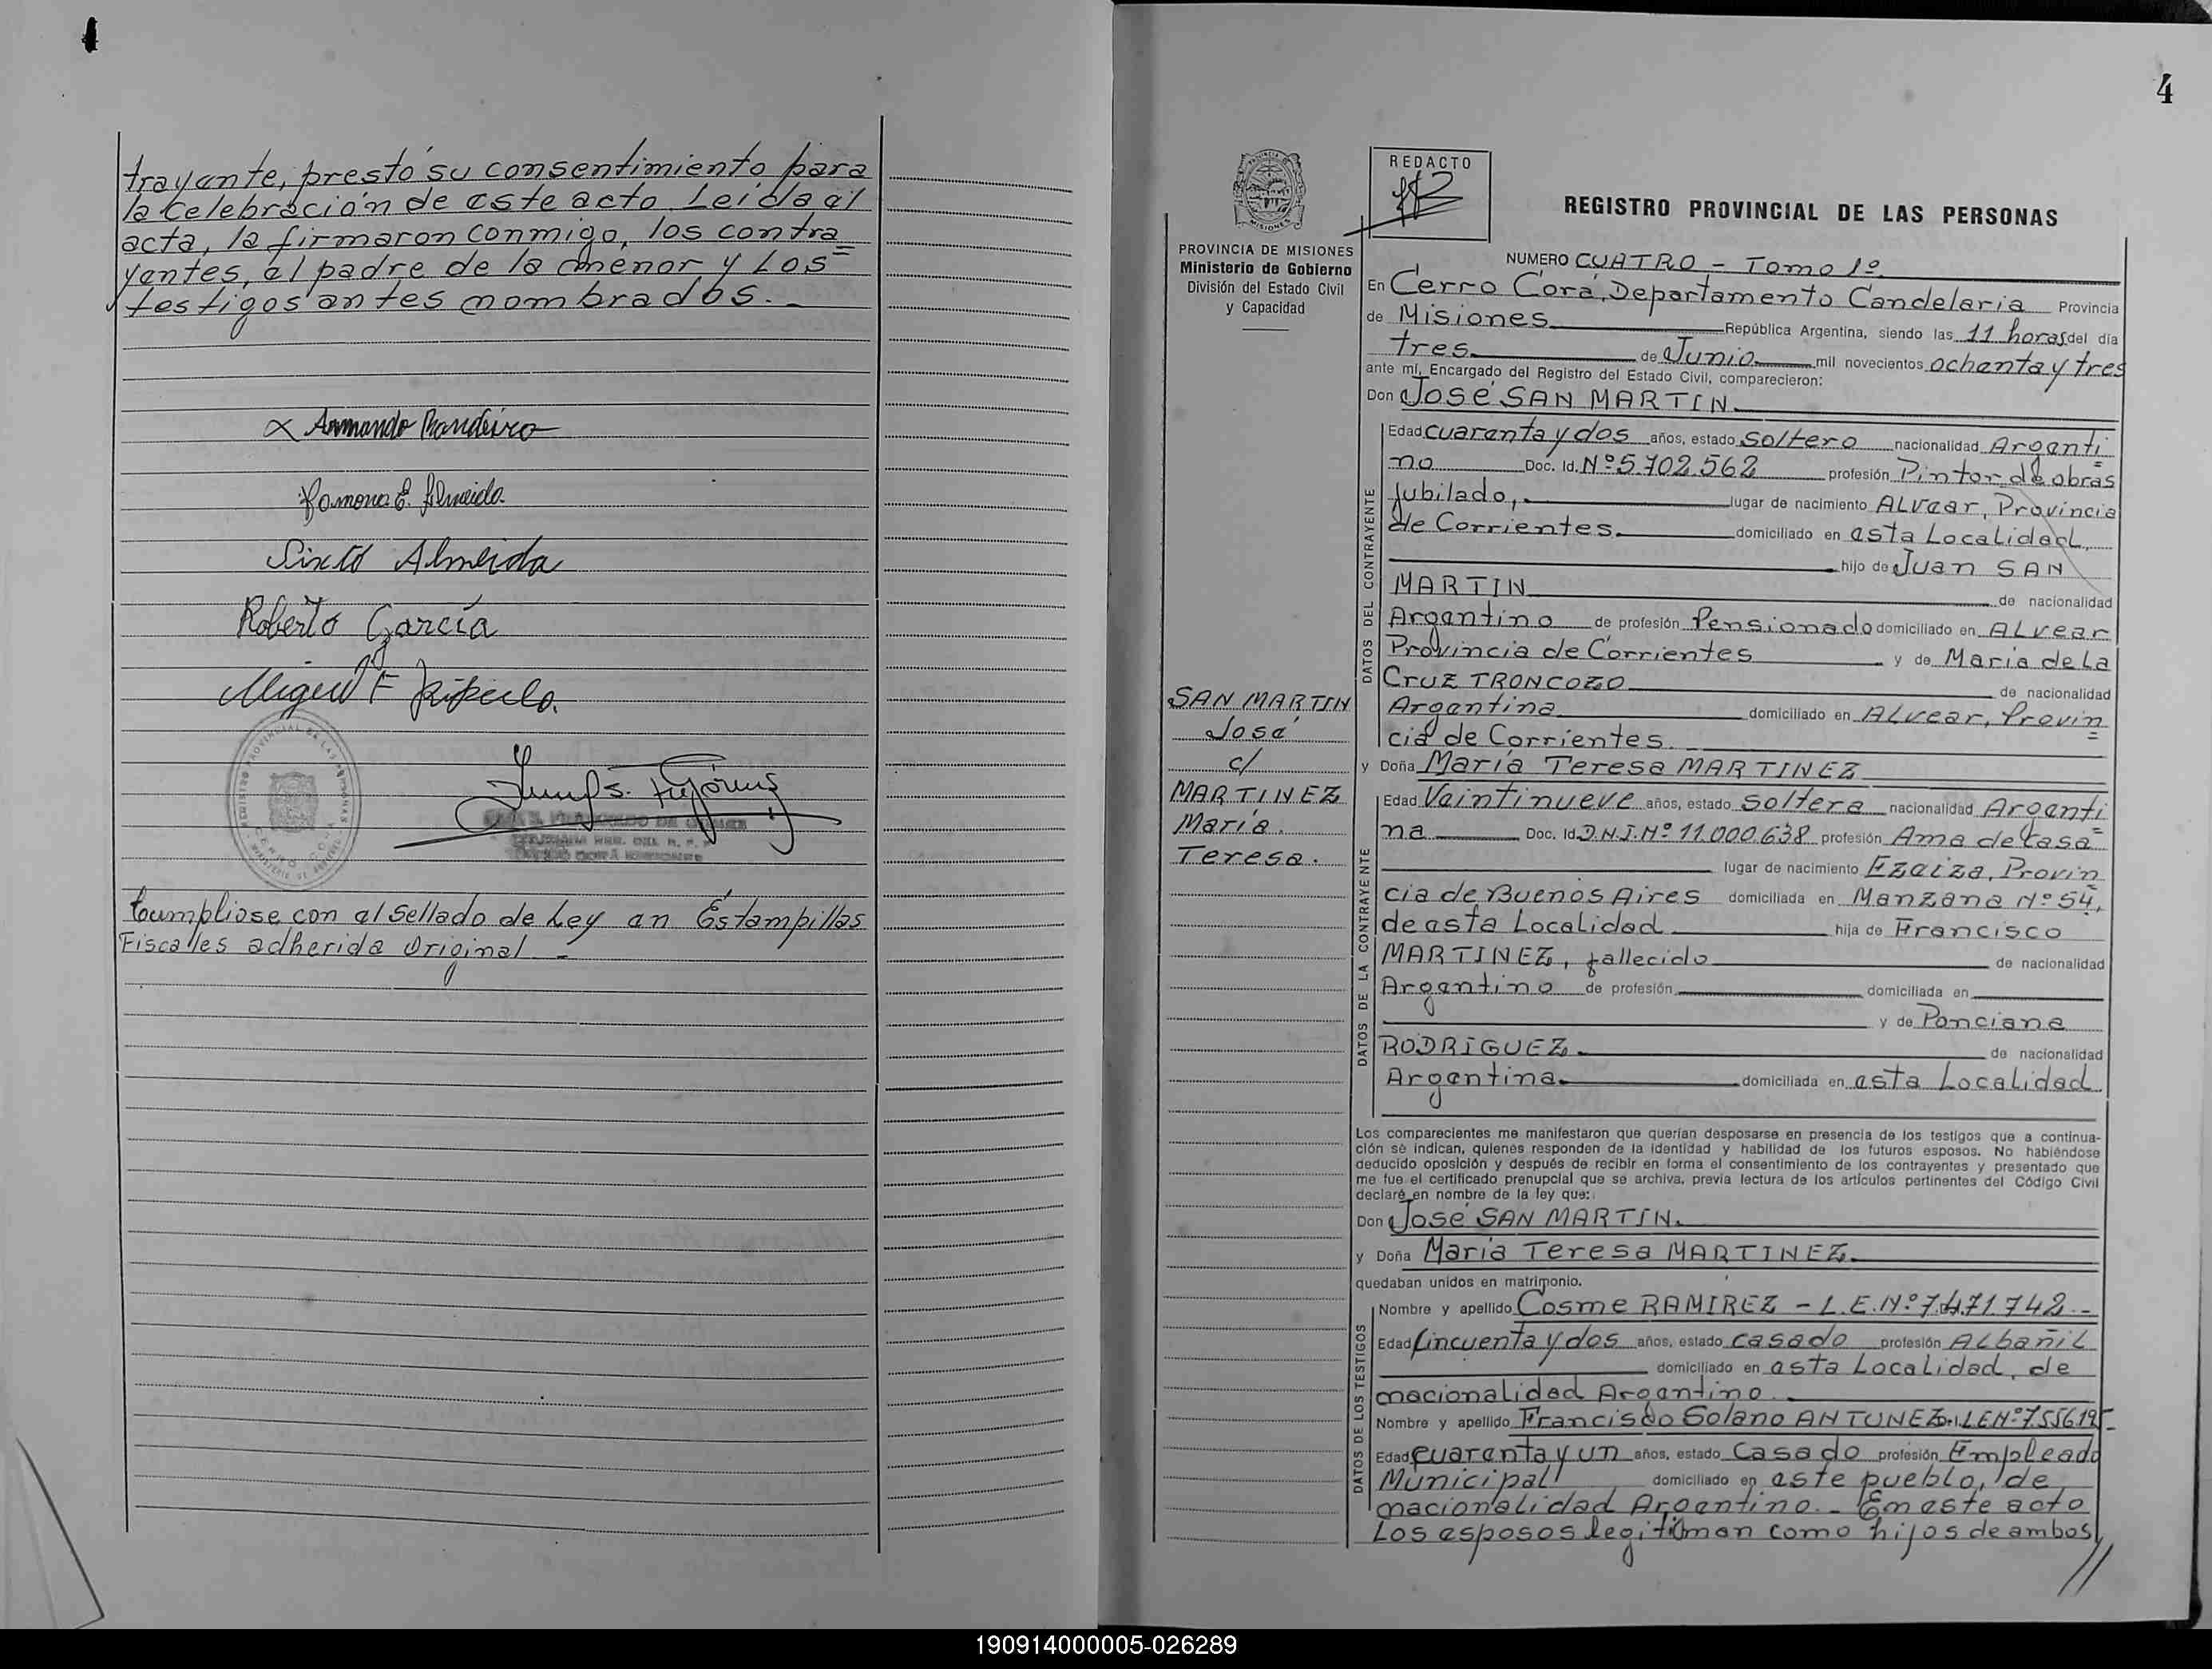 trayente, prestó su consentimiento para
la celebración de este acto. Leída el
acta, la firmaron conmigo, los contra=
yentes, el padre de la menor y Los
testigos antes nombrados.-
Armando
Ramona E. Almeida
Sixto Almeida
Roberto García
Miguel F
Cumpliose con el sellado de Ley en Estampillas
Fiscales adherida Original -
4
REDACTO
REGISTRO PROVINCIAL DE LAS PERSONAS
PROVINCIA DE MISIONES
Ministerio de Gobierno
División del Estado Civil
y Capacidad
SAN MARTIN
José
c/
MARTINEZ
María
Teresa.
NUMERO CUATRO - Tomo 1º
En Cerro Corá, Departamento Candelaria Provincia
de Misiones República Argentina, siendo las 11 horas del día
tres de Junio mil novecientos ochenta y tres
ante mí, Encargado del Registro del Estado Civil, comparecieron:
Don José SAN MARTIN.
DATOS DEL CONTRAYENTE
Edad cuarenta y dos años, estado soltero nacionalidad Argenti=
no Doc. Id. Nº 5.702.562 profesión Pintor de obras
Jubilado, lugar de nacimiento ALVear, Provincia
de Corrientes. domiciliado en esta Localidad,
hijo de Juan SAN
MARTIN de nacionalidad
Argentino de profesión Pensionado domiciliado en ALVear
Provincia de Corrientes y de María de La
Cruz TRONCOZO de nacionalidad
Argentina domiciliado en ALvear, Provin=
cia de Corrientes.
y Doña María Teresa MARTINEZ
DATOS DE LA CONTRAYENTE
Edad Veintinueve años, estado soltera nacionalidad Argenti=
na Doc. Id. D.N.I.Nº 11.000.638 profesión Ama de Casa
lugar de nacimiento Ezeiza, Provin
cia de Buenos Aires domiciliada en Manzana Nº 54,
de esta Localidad hija de Francisco
MARTINEZ, fallecido de nacionalidad
Argentino de profesión domiciliada en
y de Ponciana
RODRIGUEZ. de nacionalidad
Argentina. domiciliada en esta Localidad
Los comparecientes me manifestaron que querían desposarse en presencia de los testigos que a continua-
ción se indican, quienes responden de la identidad y habilidad de los futuros esposos. No habiéndose
deducido oposición y después de recibir en forma el consentimiento de los contrayentes y presentado que
me fue el certificado prenupcial que se archiva, previa lectura de los artículos pertinentes del Código Civil
declaré en nombre de la ley que:
Don José SAN MARTIN.
y Doña María Teresa MARTINEZ.
quedaban unidos en matrimonio.
DATOS DE LOS TESTIGOS
Nombre y apellido Cosme RAMIREZ - L.E.Nº 7.471.742.-
Edad Cincuenta y dos años, estado casado profesión ALbañiL
domiciliado en esta Localidad, de
nacionalidad Argentino.
Nombre y apellido Francisco Solano ANTUNEZ
Edad cuarenta y un años, estado casado profesión Empleado
Municipal domiciliado en este pueblo, de
nacionalidad Argentino.- En este acto
Los esposos legitiman como hijos de ambos,
//
190914000005-026289